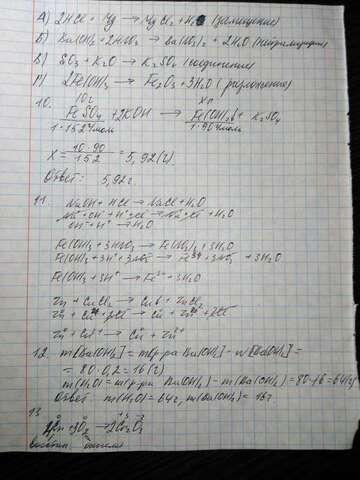 А) 2HCl + Mg → MgCl2 + H2 (замещение)
Б) Ba(OH)2 + 2HNO3 → Ba(NO3)2 + 2H2O (нейтрализация)
В) SO3 + K2O → K2SO4 (соединение)
Г) 2Fe(OH)3 → Fe2O3 + 3H2O (разложение)
10. 10г xг
FeSO4 + 2KOH → Fe(OH)2 + K2SO4
1·152г/моль 1·90г/моль
x = 10·90 / 152 = 5,92 (г)
Ответ: 5,92г.
11. NaOH + HCl → NaCl + H2O
Na+ + OH- + H+ + Cl- → Na+ + Cl- + H2O
OH- + H+ → H2O
Fe(OH)3 + 3HNO3 → Fe(NO3)3 + 3H2O
Fe(OH)3 + 3H+ + 3NO3- → Fe3+ + 3NO3- + 3H2O
Fe(OH)3 + 3H+ → Fe3+ + 3H2O
Zn + CuCl2 → Cu + ZnCl2
Zn + Cu2+ + 2Cl- → Cu + Zn2+ + 2Cl-
Zn + Cu2+ → Cu + Zn2+
12. m(Ba(OH)2) = m(р-ра Ba(OH)2) · w(Ba(OH)2) =
= 80·0,2 = 16 (г)
m(H2O) = m(р-ра Ba(OH)2) - m(Ba(OH)2) = 80-16 = 64(г)
Ответ: m(H2O) = 64г, m(Ba(OH)2) = 16г
13.